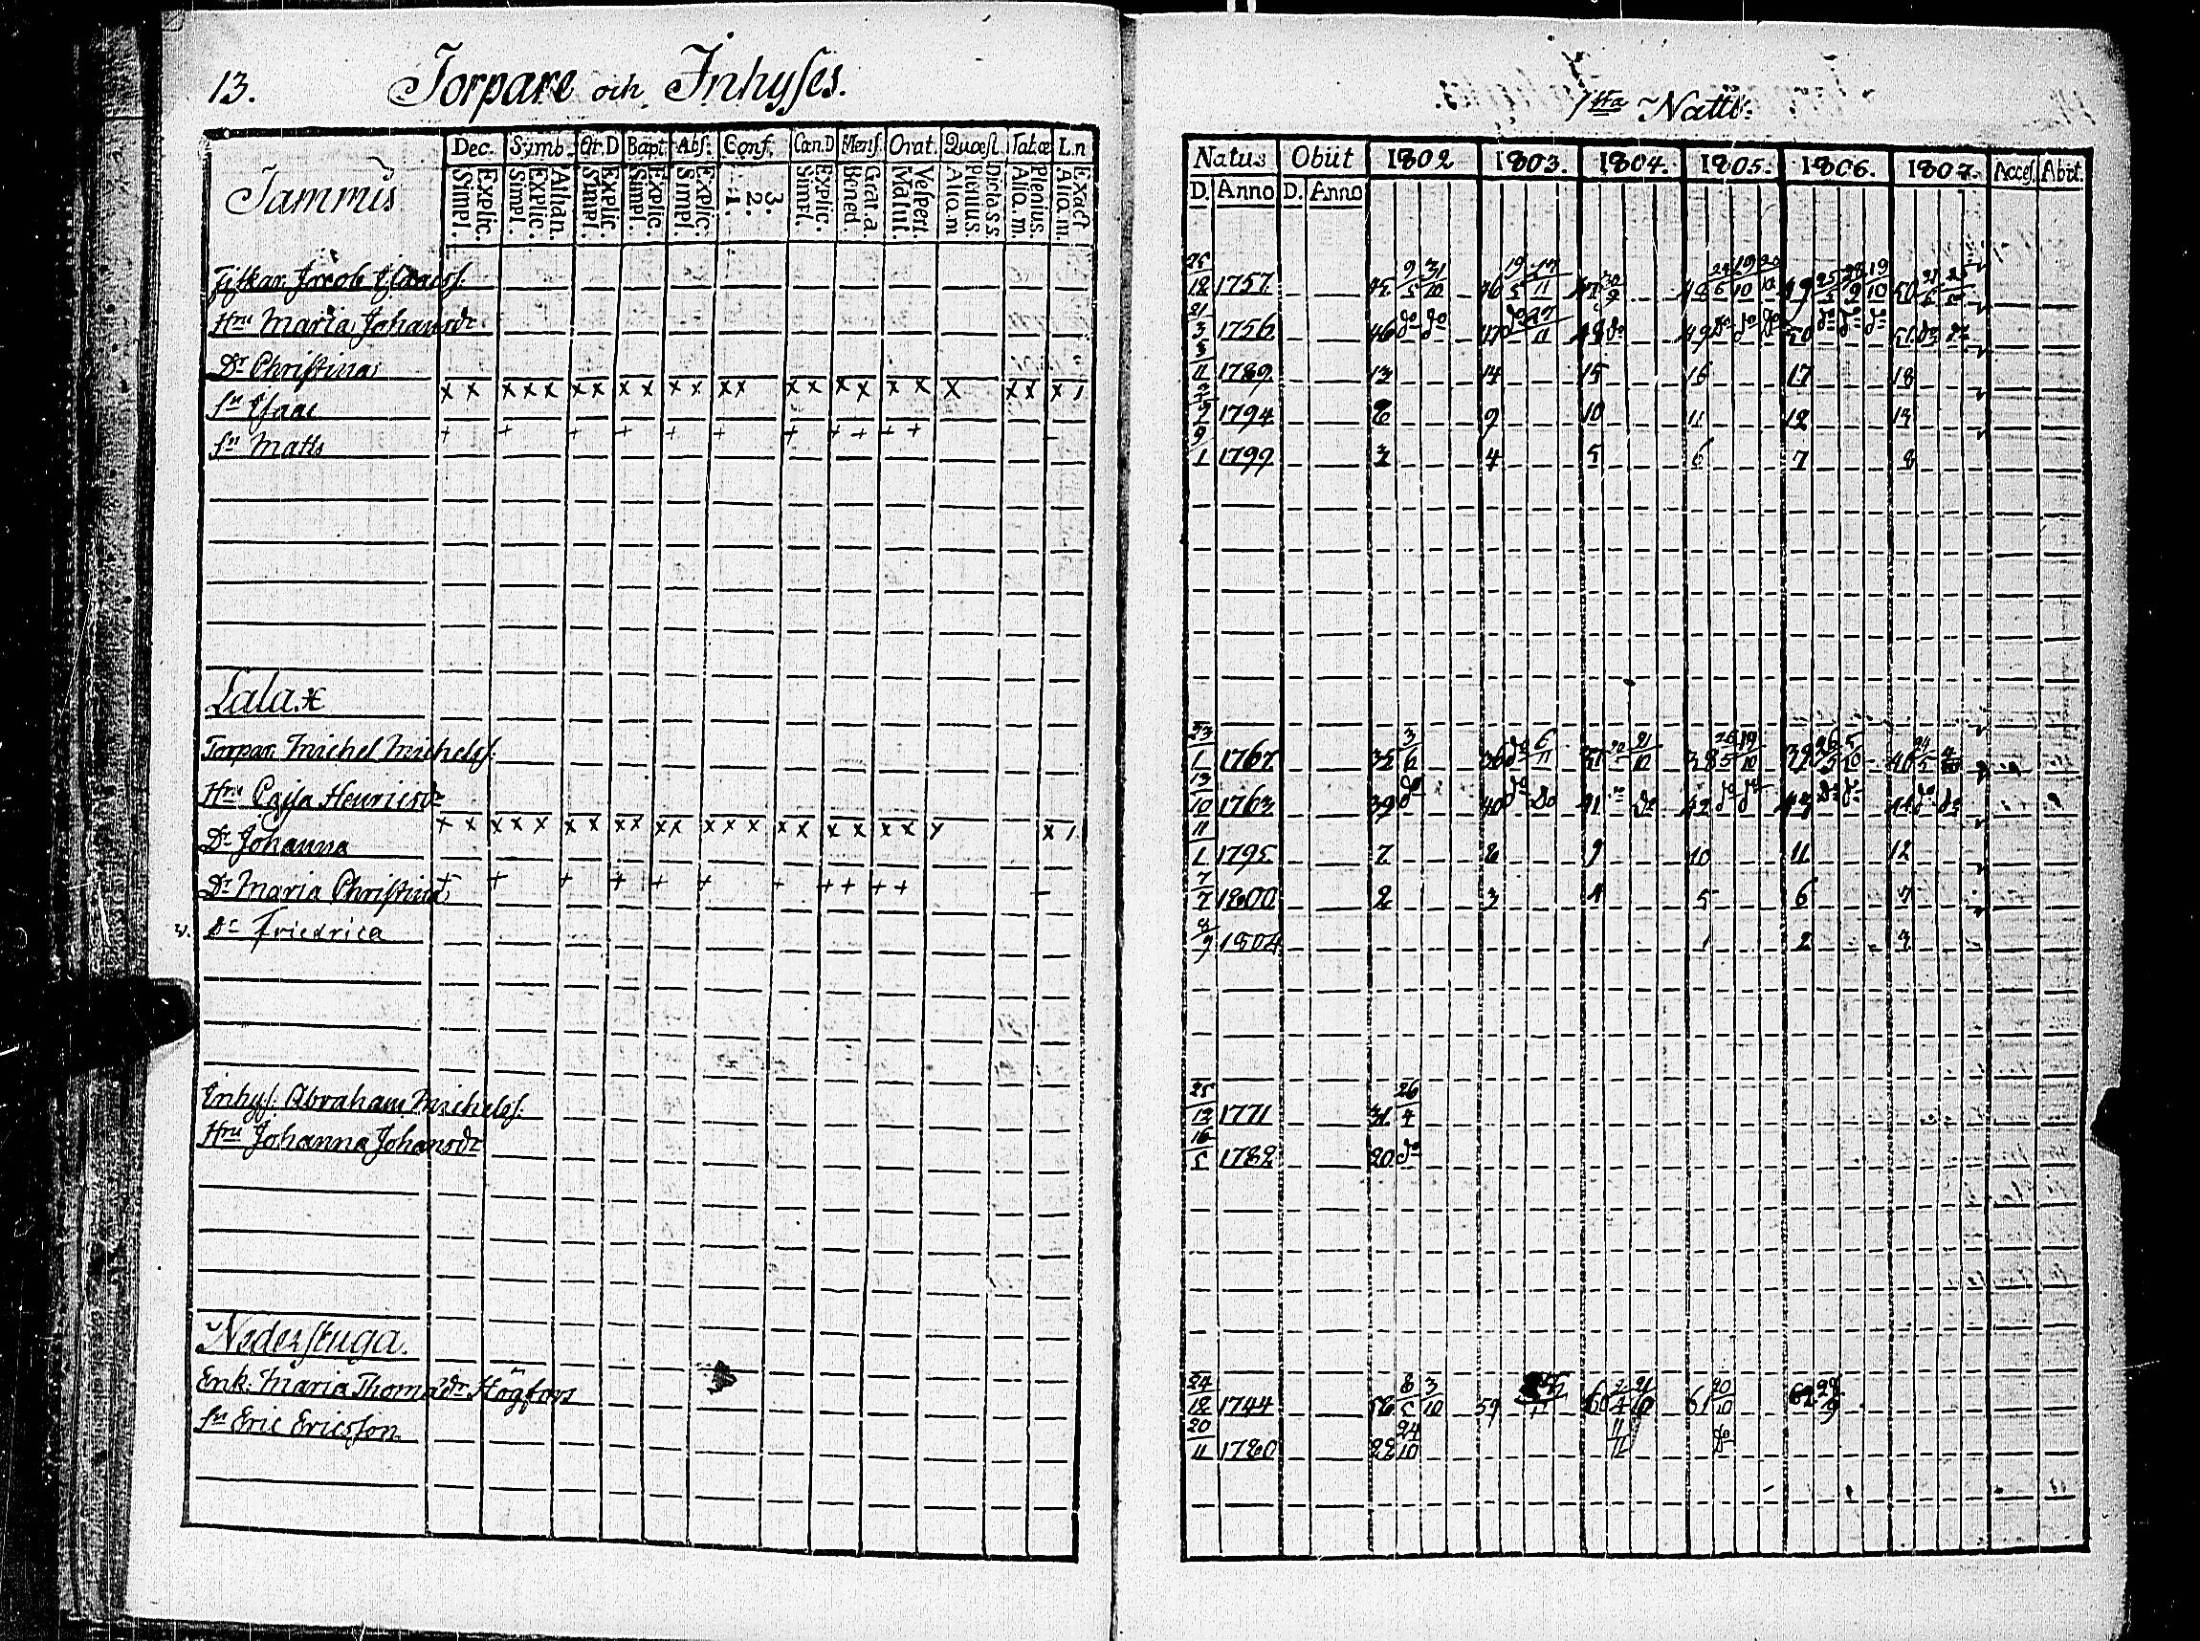 13. Torpare och Inhyses.
Dec. Symb. Or.D Bapt. Abs. Conf. Can.D Mens. Orat. Quæst. Tab.œ L.n
Tammis
Simpl. Explic. Simpl. Explic. Athan. Simpl. Explic. Simpl. Explic. Simpl. Explic. 1. 2. 3. Simpl. Explic. Bened. Grat. a. Matut. Vespert. Aliq.m Plenius Dicta S.S. Aliq.m. Plenius. Aliq.m. Exact
Fiskar. Jacob Isaacss.
Hru Maria Johansdr
Dr Christina
Sn Isaac
Sn Matts
Lala.
Torpar. Michel Michelss.
Hru Cajsa Henricsdr
Dr Johanna
Dr Maria Christina
Dr Friedrica
Inhys. Abraham Michelss.
Hru Johanna Johansdr
Nederstuga.
Enk. Maria Thomasdr Högfors
Sn Eric Ericsson.
1sta Natt:
Natus Obiit 1802 1803. 1804. 1805. 1806. 1807. Acces. Abit.
D. Anno D. Anno
25/12 1757 45 9/5 31/10 46 19/5 49 50
21/3 1756 46 do do 47 48 do 49 do do do 50 do do do 51 do do
3/11 1789 13 14 15 16 17 18
1794 8 9 10 11 12 13
9/1 1799 3 4 5 6 7 8
23/1 1767 35 3/6 36 do 6/11 37 21/10 38 26/5 19/10 39 26/5 5/10 40
13/10 1763 39 do 40 do do 41 do 42 do do 43 do do 44 do do
11/1 1795 7 8 9 10 11 12
7/7 1800 2 3 4 5 6 7
8/9 1804 1 2 3
25/12 1771 31. 26/4
16/5 1782 20 do
24/12 1744 58 8/5 3/10 59 60 61 20/10 62 28/9
20/11 1780 22 24/10 11/11 do